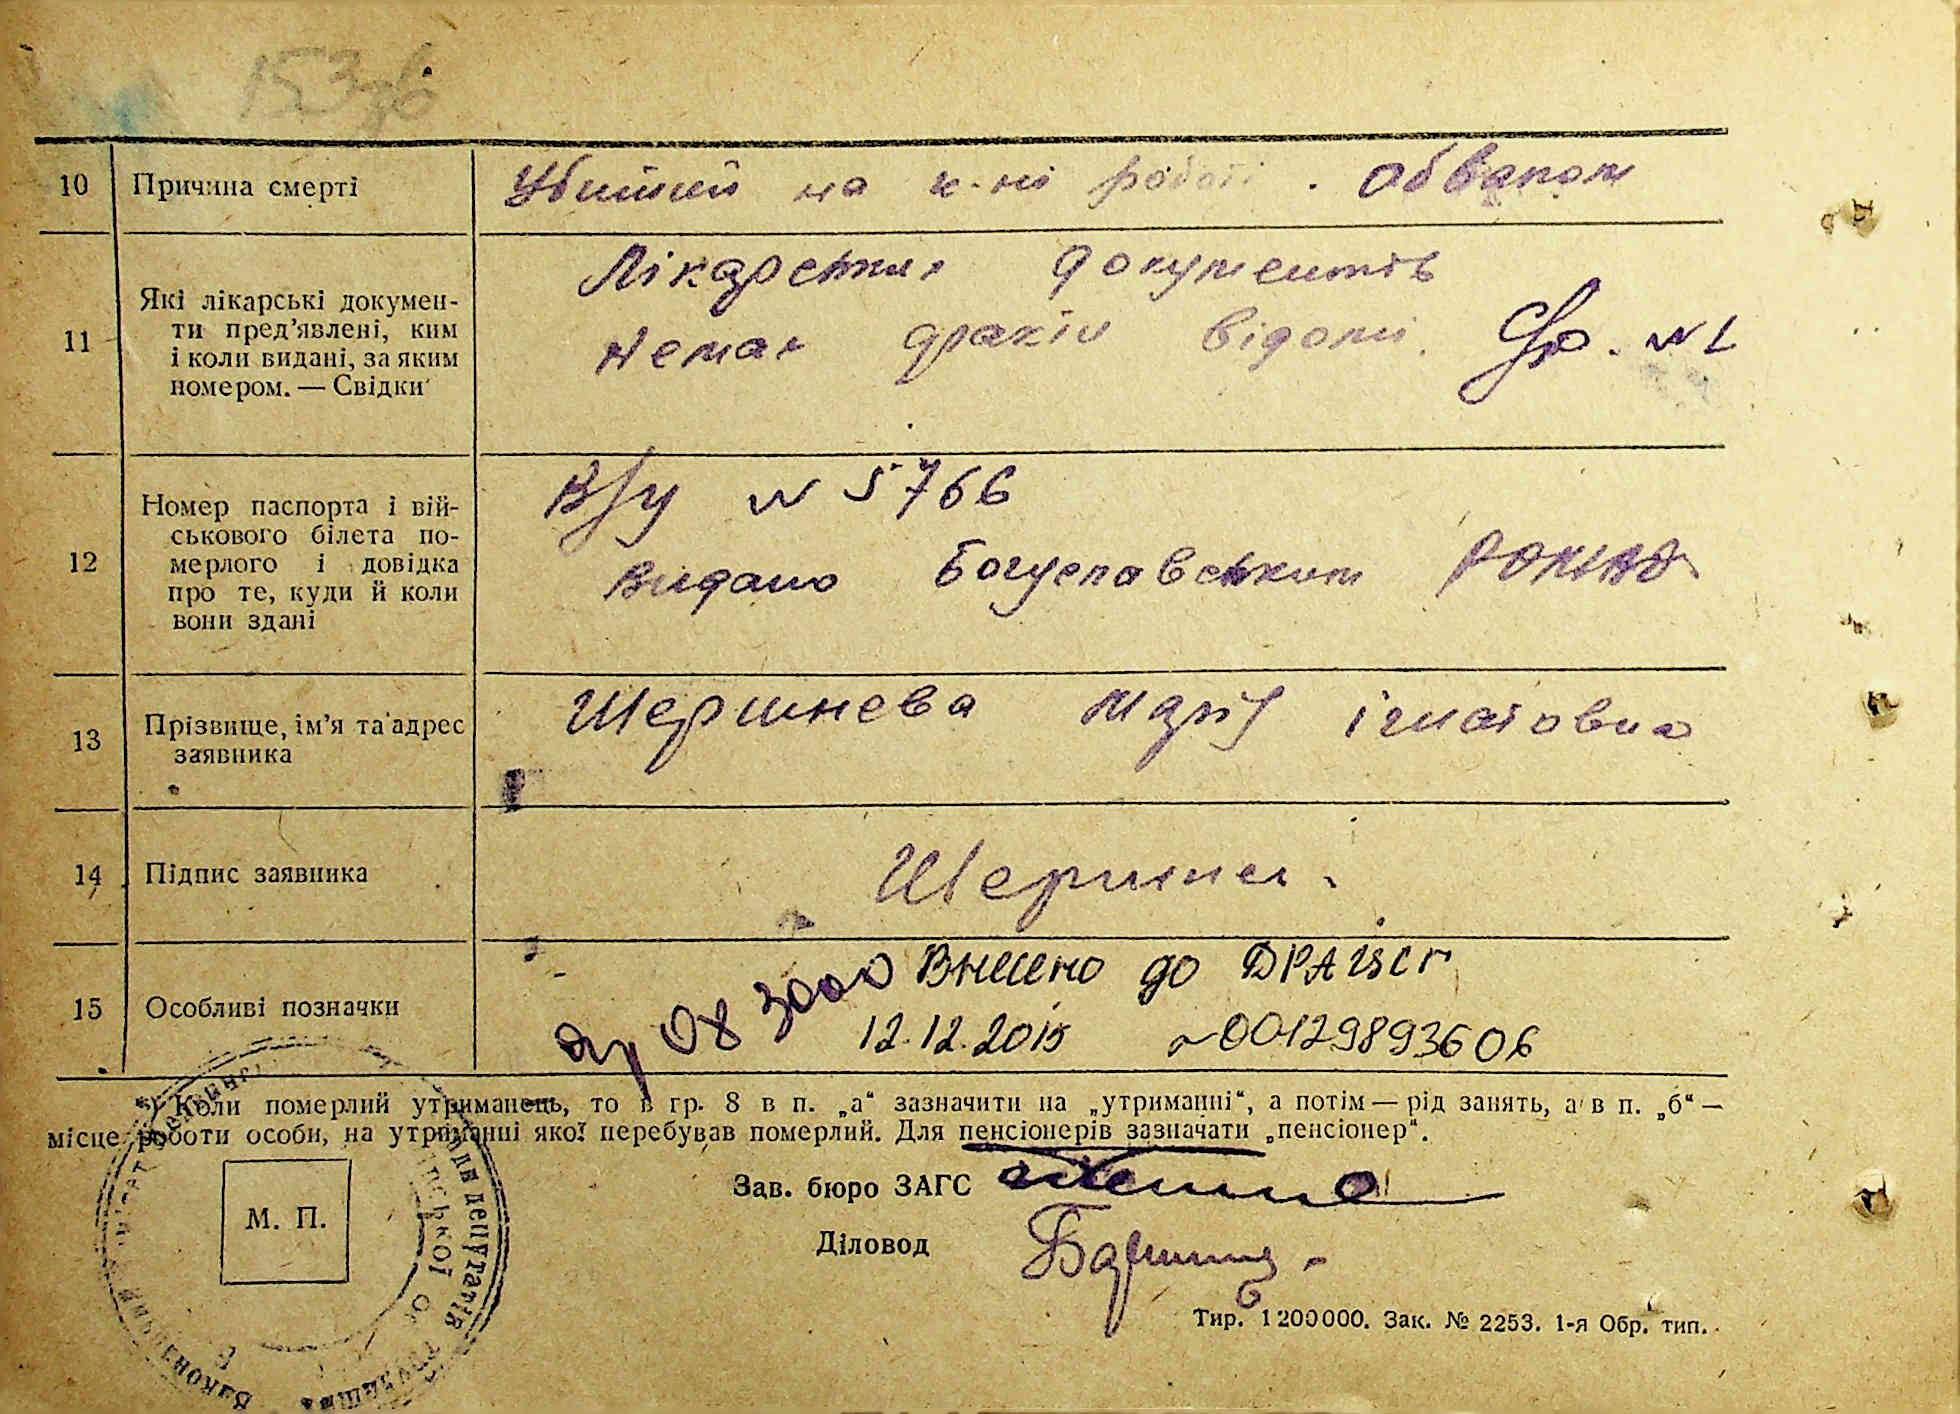 153зв
10 Причина смерті Убитий на роботі. Обвалом
11 Які лікарські докумен-
ти пред’явлені, ким
і коли видані, за яким
номером. — Свідки
Лікарських документів
немає відомі. №1
12 Номер паспорта і вій-
ськового білета по-
мерлого і довідка
про те, куди й коли
вони здані
В/у № 5766
Видано Богуславським
13 Прізвище, ім’я та адрес
заявника
Шершнева Марія Ігнатовна
14 Підпис заявника
15 Особливі позначки
Внесено до ДРАЦСГ
08 3000
12.12.2015 00129893606
*) Коли померлий утриманець, то в гр. 8 в п. „а“ зазначити на „утриманні“, а потім — рід занять, а в п. „б“ —
місце роботи особи, на утриманні якої перебував померлий. Для пенсіонерів зазначати „пенсіонер“.
Зав. бюро ЗАГС
М. П.
Діловод
Тир. 1200000. Зак. № 2253. 1-я Обр. тип.